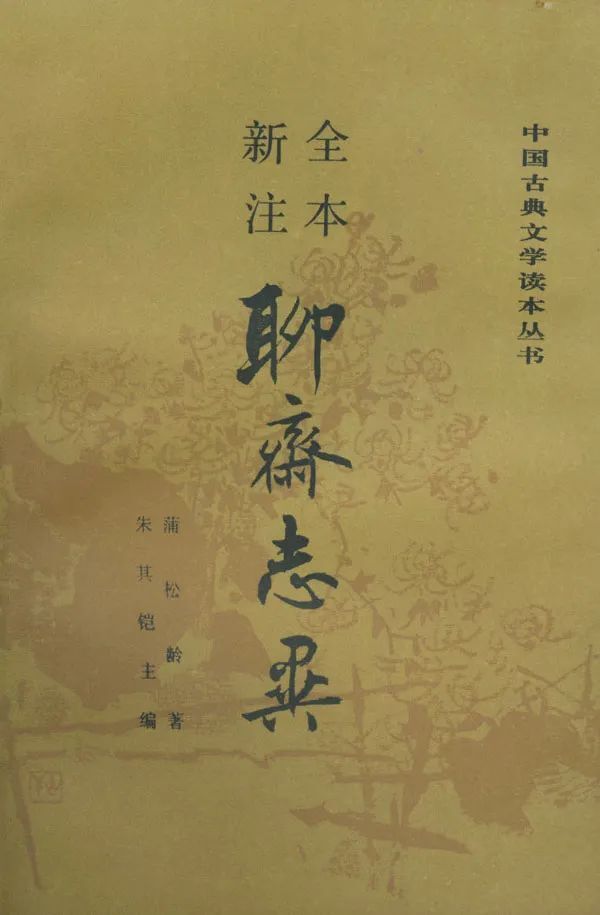 中国古典文学读本丛书
全本
新注
聊齋志異
蒲松龄著
朱其铠主编